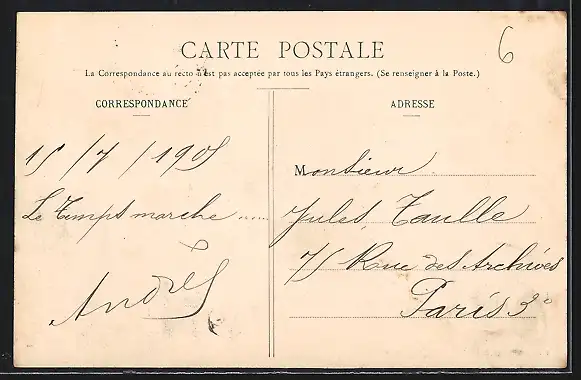 CARTE POSTALE
La Correspondance au recto n'est pas acceptée par tous les Pays étrangers. (Se renseigner à la Poste.)
6
CORRESPONDANCE
15/7/1905
Le Temps marche ......
Andrès
ADRESSE
Monsieur
Jules Taulle
75 Rue des Archives
Paris 3e